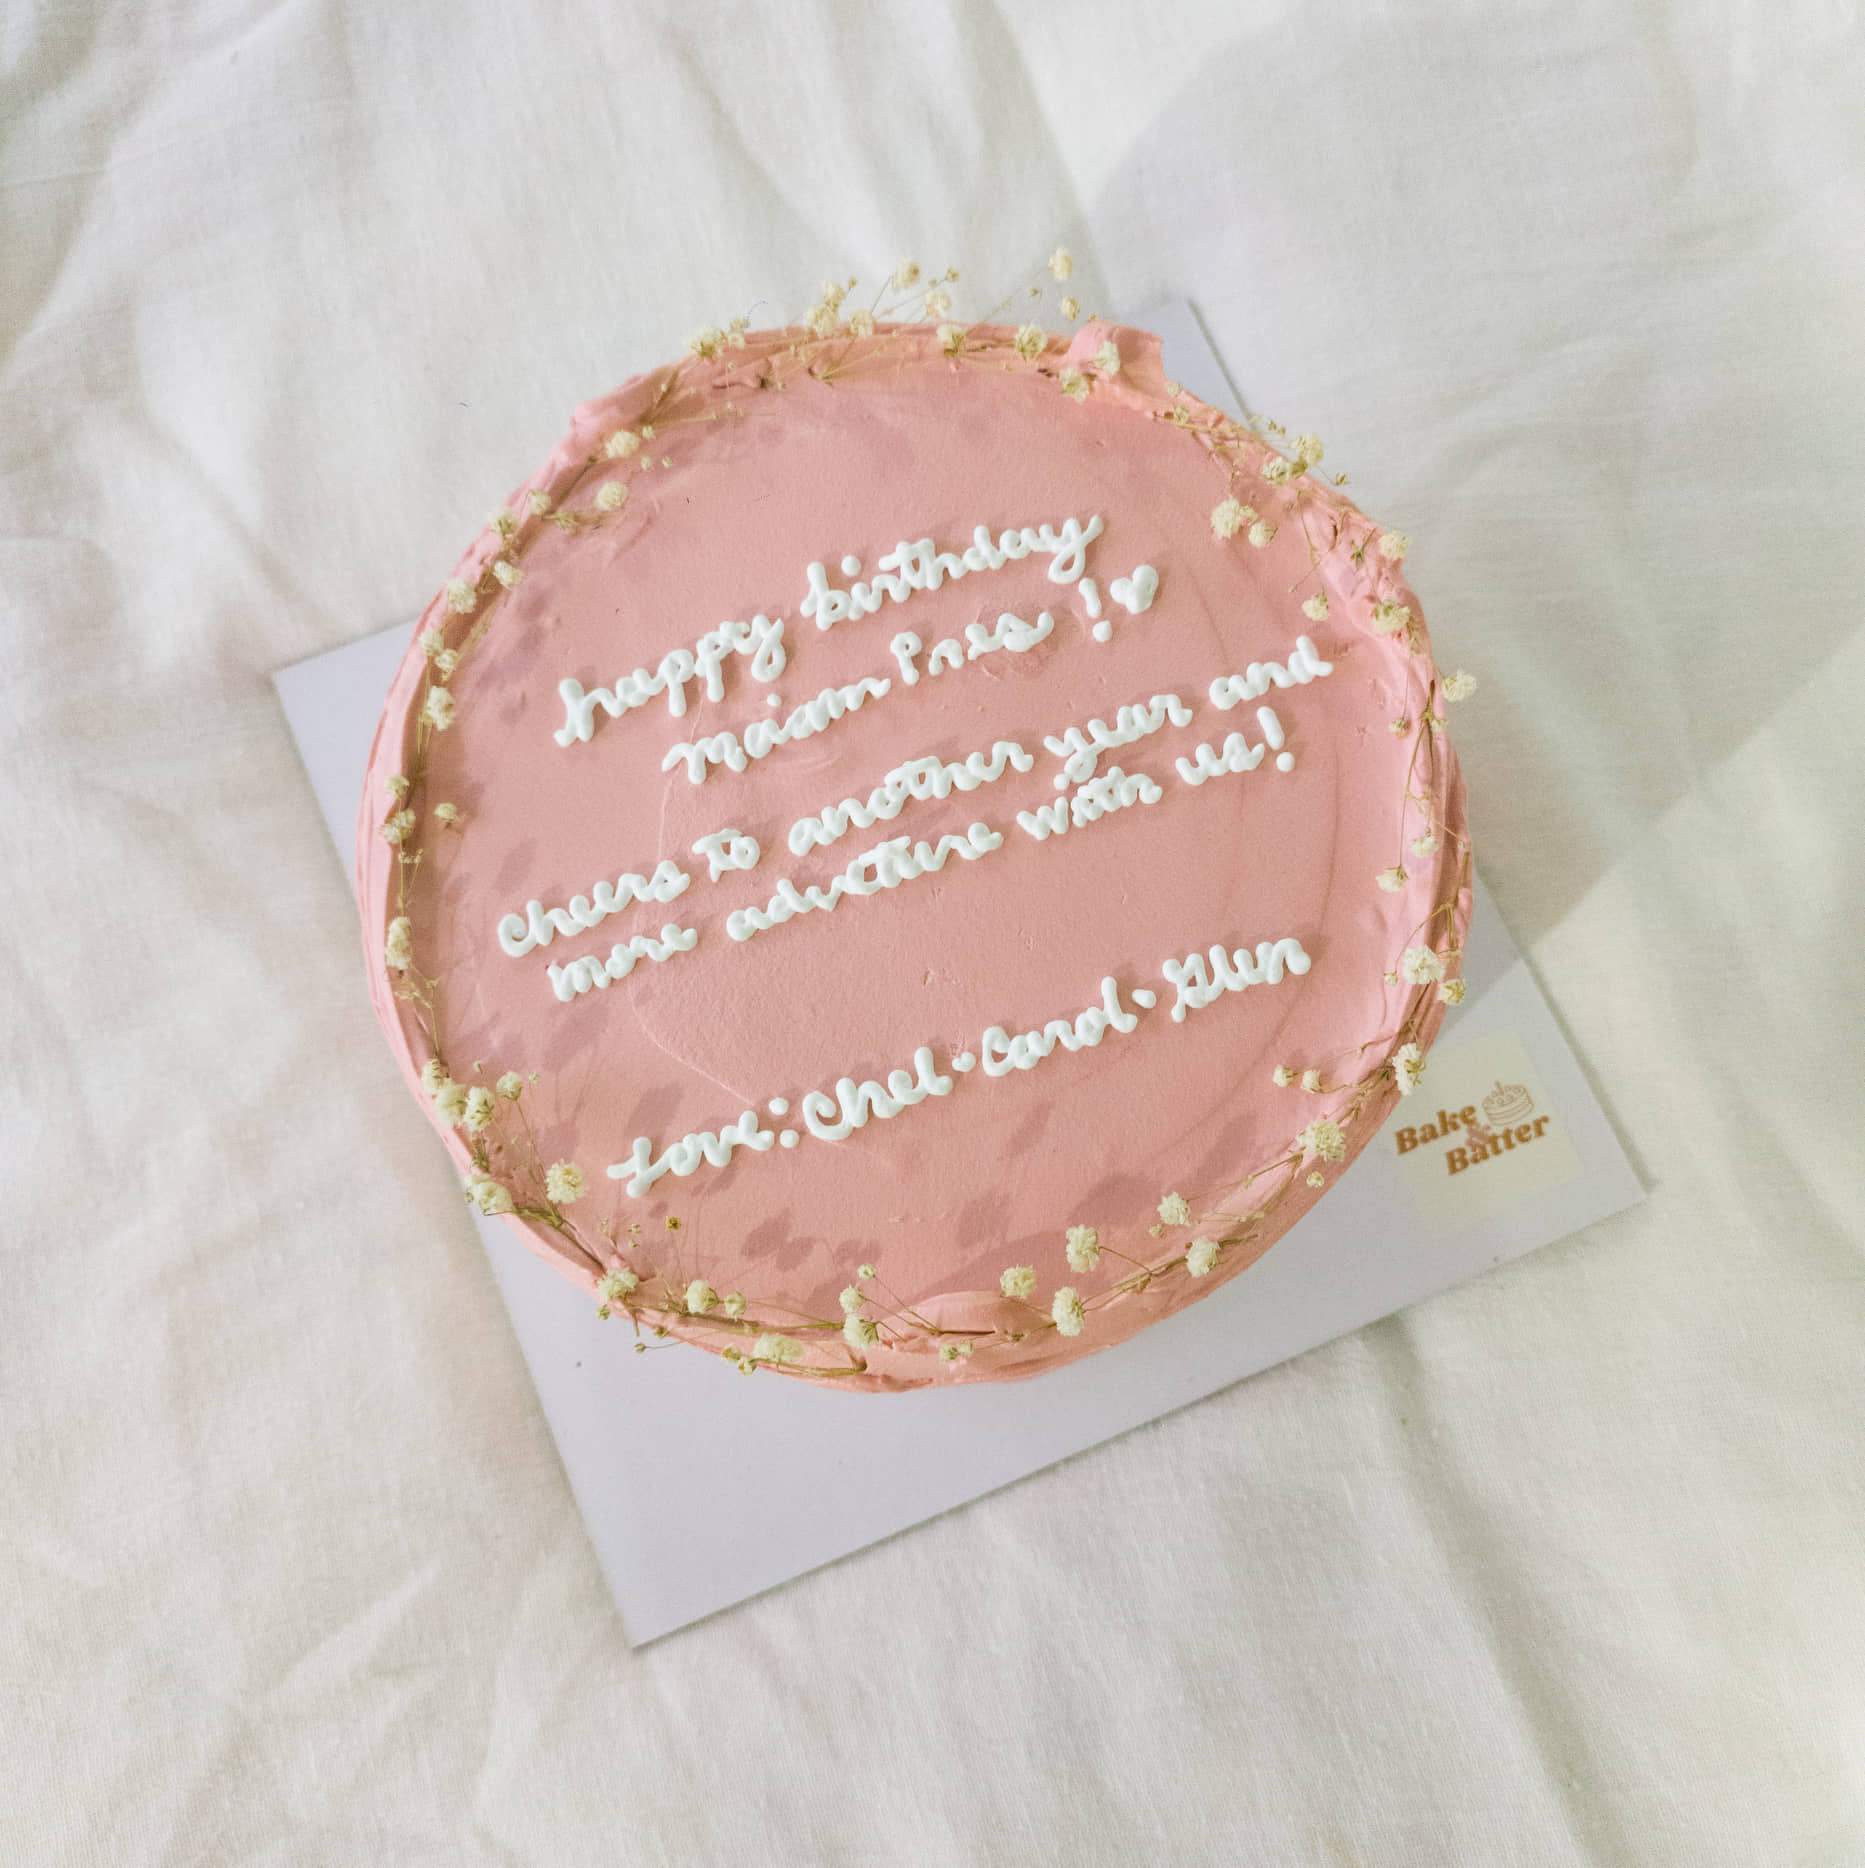 happy birthday
maiam Pres!
cheers to another year and
more advcture with us!
Love: Chel • Carol • Glen
Bake
&
Batter